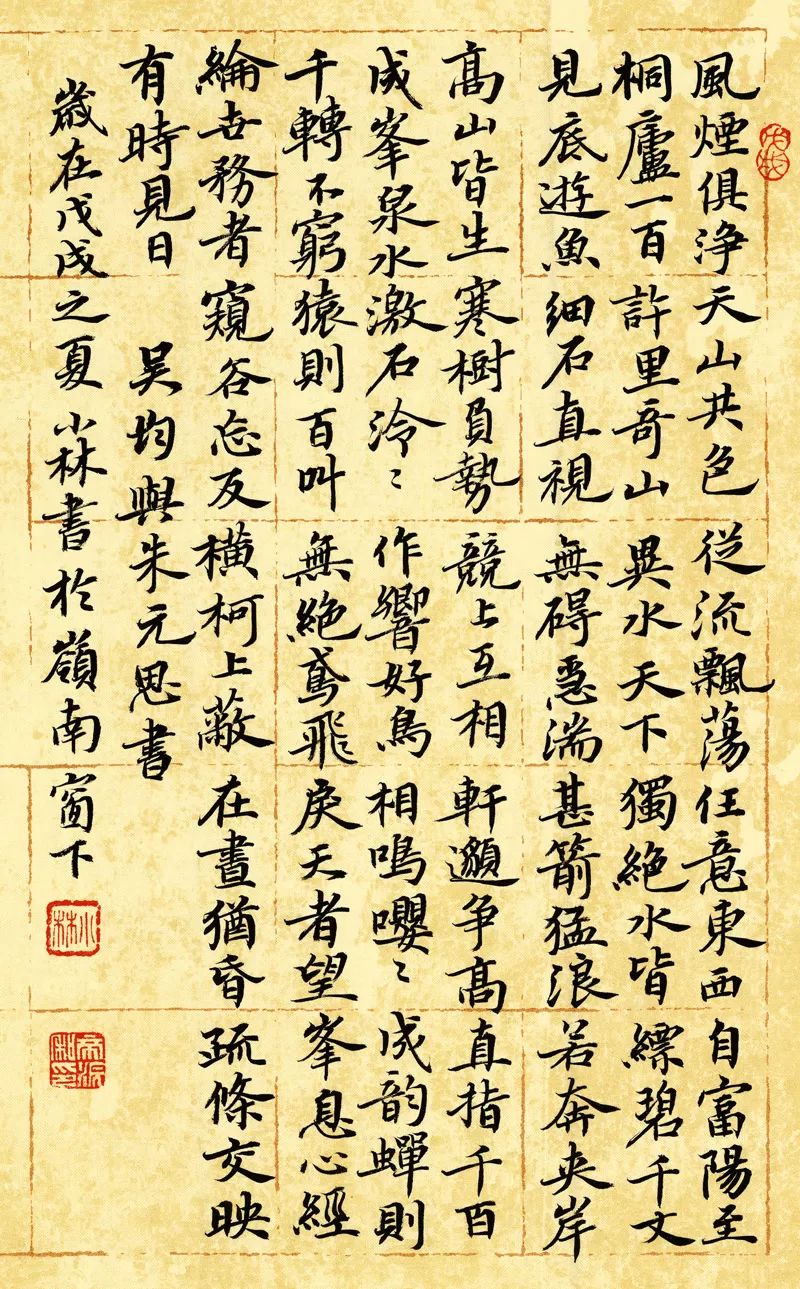 風煙俱淨天山共色從流飄蕩任意東西自富陽至
桐廬一百許里奇山異水天下獨絕水皆縹碧千丈
見底遊魚細石直視無碍急湍甚箭猛浪若奔夾岸
高山皆生寒樹負勢競上互相軒邈争高直指千百
成峯泉水激石泠〻作響好鳥相鳴嚶〻成韵蟬則
千轉不窮猿則百叫無絕鳶飛戾天者望峯息心經
綸世務者窺谷忘反橫柯上蔽在晝猶昏疏條交映
有時見日 吳均與朱元思書
歲在戊戌之夏小林書於嶺南窗下
小林